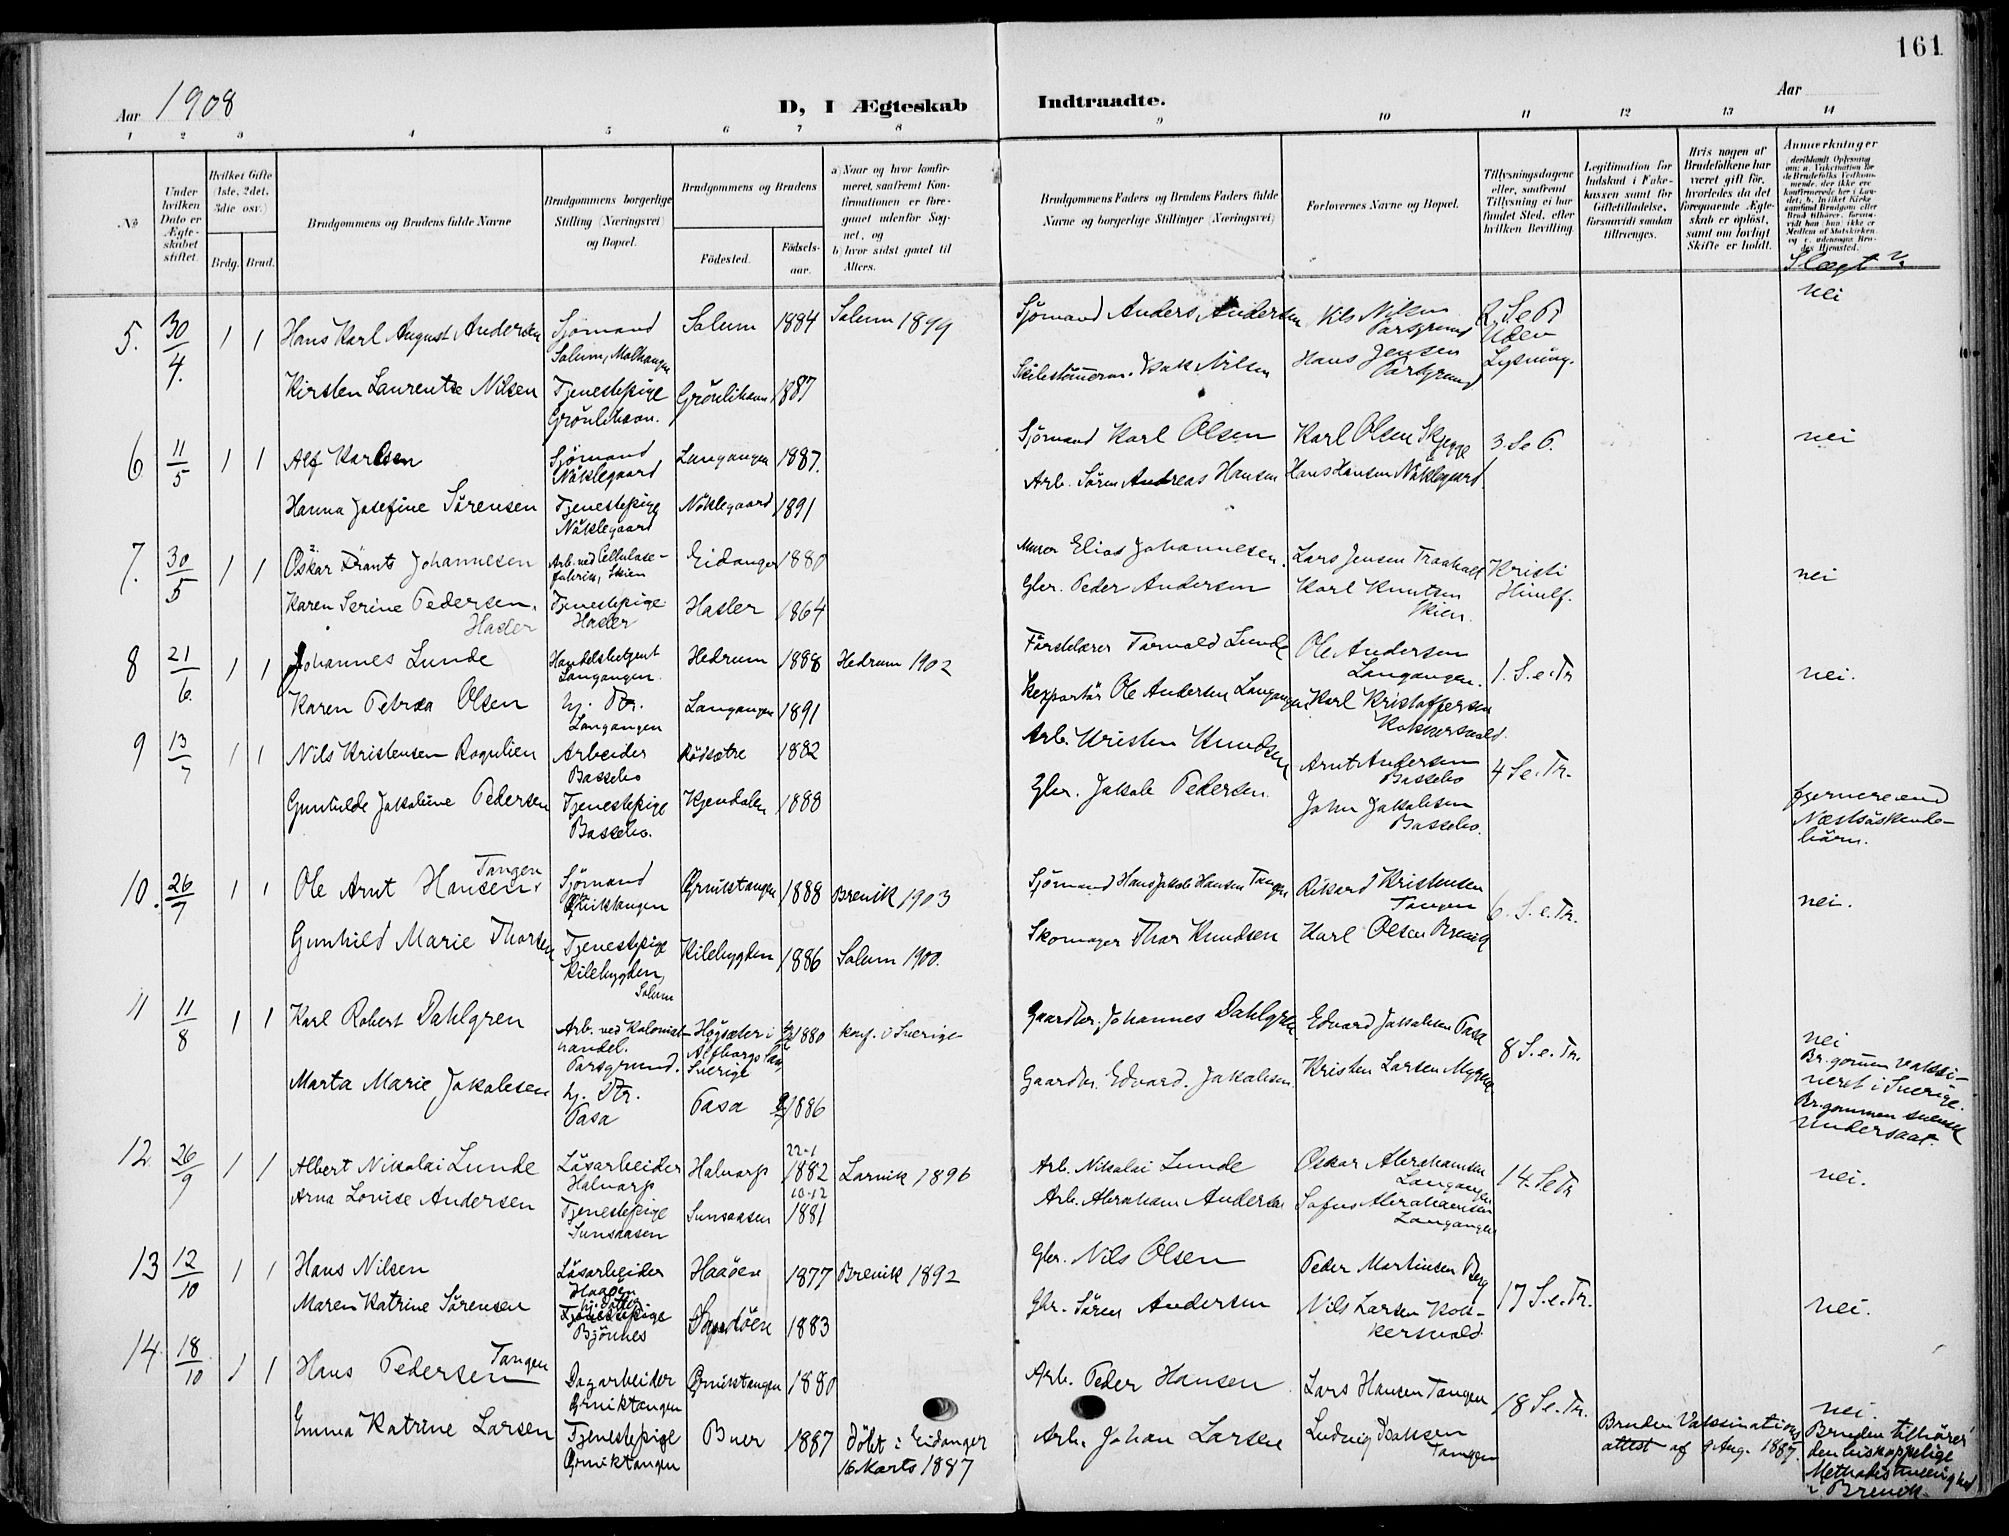 161
Aar 1908
D, I Ægteskab Indtraadte.
Aar
1 2 3 4 5 6 7 8 9 10 11 12 13 14
No
Under hvilken Dato er Ægteskabet stiftet.
Hvilket Gifte (1ste, 2det, 3die osv.)
Brdg. Brud.
Brudgommens og Brudens fulde Navne
Brudgommens borgerlige Stilling (Næringsvei) og Bopæl.
Brudgommens og Brudens
Födested.
Födselsaar.
a) Naar og hvor konfirmeret, saafremt Konfirmationen er foregaaet udenfor Sognet, og
b) hvor sidst gaaet til Alters.
Brudgommens Faders og Brudens Faders fulde Navne og borgerlige Stillinger (Næringsvei)
Forlovernes Navne og Bopæl.
Tillysningsdagene eller, saafremt Tillysning ei har fundet Sted, efter hvilken Bevilling
Legitimation for Indskud i Fakekassen samt for Giftetilladelse, forsaavidt saadan tiltrænges.
Hvis nogen af Brudefolkene har været gift för, hvorledes da det foregaaende Ægteskab er oplöst, samt om lovligt Skifte er holdt.
Anmærkninger
Slægt?
5. 30/4. 1 1 Hans Karl August Andersen Sjömand Solum 1884 Solum 1899 Sjömand Anders Andersen Nils Nilsen Porsgrund Uden Lysning. nei
Kirsten Laurentse Nilsen Tjenestepige Grönlihavn. Grönlihavn 1887 Isak Nilsen Hans Jensen Porsgrund
6 11/5 1 1 Alf Karlsen Sjömand Nöklegaard Langangen 1887. Sjömand Karl Olsen Karl Olsen Skjegge 3. S. e. P. nei
Hanna Josefine Sörensen Tjenestepige Nöklegaard Nöklegaard 1891 Arb. Sören Andreas Hansen Hans Hansen Nöklegaard
7. 30/5 1 1 Oskar Frants Johannesen Arb. ved Cellulosefabrik, Skien Eidanger 1880 Murer Elias Johannesen. Lars Jensen Kristi Himlf. nei
Karen Serine Pedersen. Hasler Tjenestepige Hasler Hasler 1864 Gbr. Peder Andersen Karl Knutsen Skien.
8 21/6 1 1 Johannes Lunde Handelsbetjent Langangen. Hedrum 1888 Hedrum 1902 Torvald Lunde Ole Andersen Langangen. 1. S. e. Tr nei.
Karen Petrea Olsen hj. Dtr. Langangen Langangen 1891 Ole Andersen Langangen Karl Kristoffersen Kokkersvold
9 13/7 1 1 Nils Kristensen Rogulien Arbeider Bassebo Rödsætre 1882 Arb. Kristen Knudsen Arnt Andersen Bassebo 4 S. e. Tr. fjernere end Næstsöskendebörn.
Gunhilde Jakobine Pedersen Tjenestepige Bassebo. Kjendalen 1888 Gbr. Jakob Pedersen. John Jakobsen Bassebo.
10. 26/7 1 1 Ole Arnt Hansen Tangen Sjömand Örviktangen Örviktangen 1888 Brevik 1903 Sjömand Hans Jakob Hansen Tangen Rikard Kristensen Tangen 6. S. e. Tr. nei.
Gunhild Marie Thorsen Tjenestepige Kilebygden, Solum Kilebygden 1886 Solum 1900. Skomager Thor Knudsen Karl Olsen Brevik
11 11/8 1 1 Karl Robert Dahlgren Arb. ved Kolonialhandel. Porsgrund. Högsæter i Sverige 1880 konf. i Sverige Gaardbr. Johannes Dahlgren Edvard Jakobsen Pasa 8 S. e. Tr. nei
Br.gommen vaksineret i Sverige.
Br.gommen svensk undersaat.
Marta Marie Jakobsen hj. Dtr. Pasa Pasa 1886 Gaardbr. Edvard Jakobsen Kristen Larsen
12 26/9 1 1 Albert Nikolai Lunde Lösarbeider Halvarp Halvarp 22-1 1882 Larvik 1896 Arb. Nikolai Lunde Oskar Abrahamsen Langangen 14. S e Tr nei.
Anna Lovise Andersen Tjenestepige Sunsaasen Sunsaasen 10-12 1881 Arb. Abraham Andersen Sofus Abrahamsen Langangen
13 12/10 1 1 Hans Nilsen Lösarbeider Haaöen Haaöen 1877 Brevik 1892 Gbr. Nils Olsen Peder Martinsen Berg 17 S. e. Tr. nei.
Maren Katrine Sörensen hj. Datter Tjenestepige Bjönnes 1883 Gbr. Sören Andersen Nils Larsen Kokkersvold
14. 18/10 1 1 Hans Pedersen Tangen Dagarbeider Örviktangen Örviktangen 1880 Arb. Peder Hansen Lars Hansen Tangen 18 S. e. Tr. nei.
Emma Katrine Larsen Tjenestepige Örviktangen Buer 1887 Döbt i Eidanger 16 Marts 1887 Arb. Johan Larsen Ludvig Isaksen Tangen Bruden Vaksinationsattest af 9 Aug. 1887. Bruden tilhører den biskoppelige Methodistmenighed i Brevik.